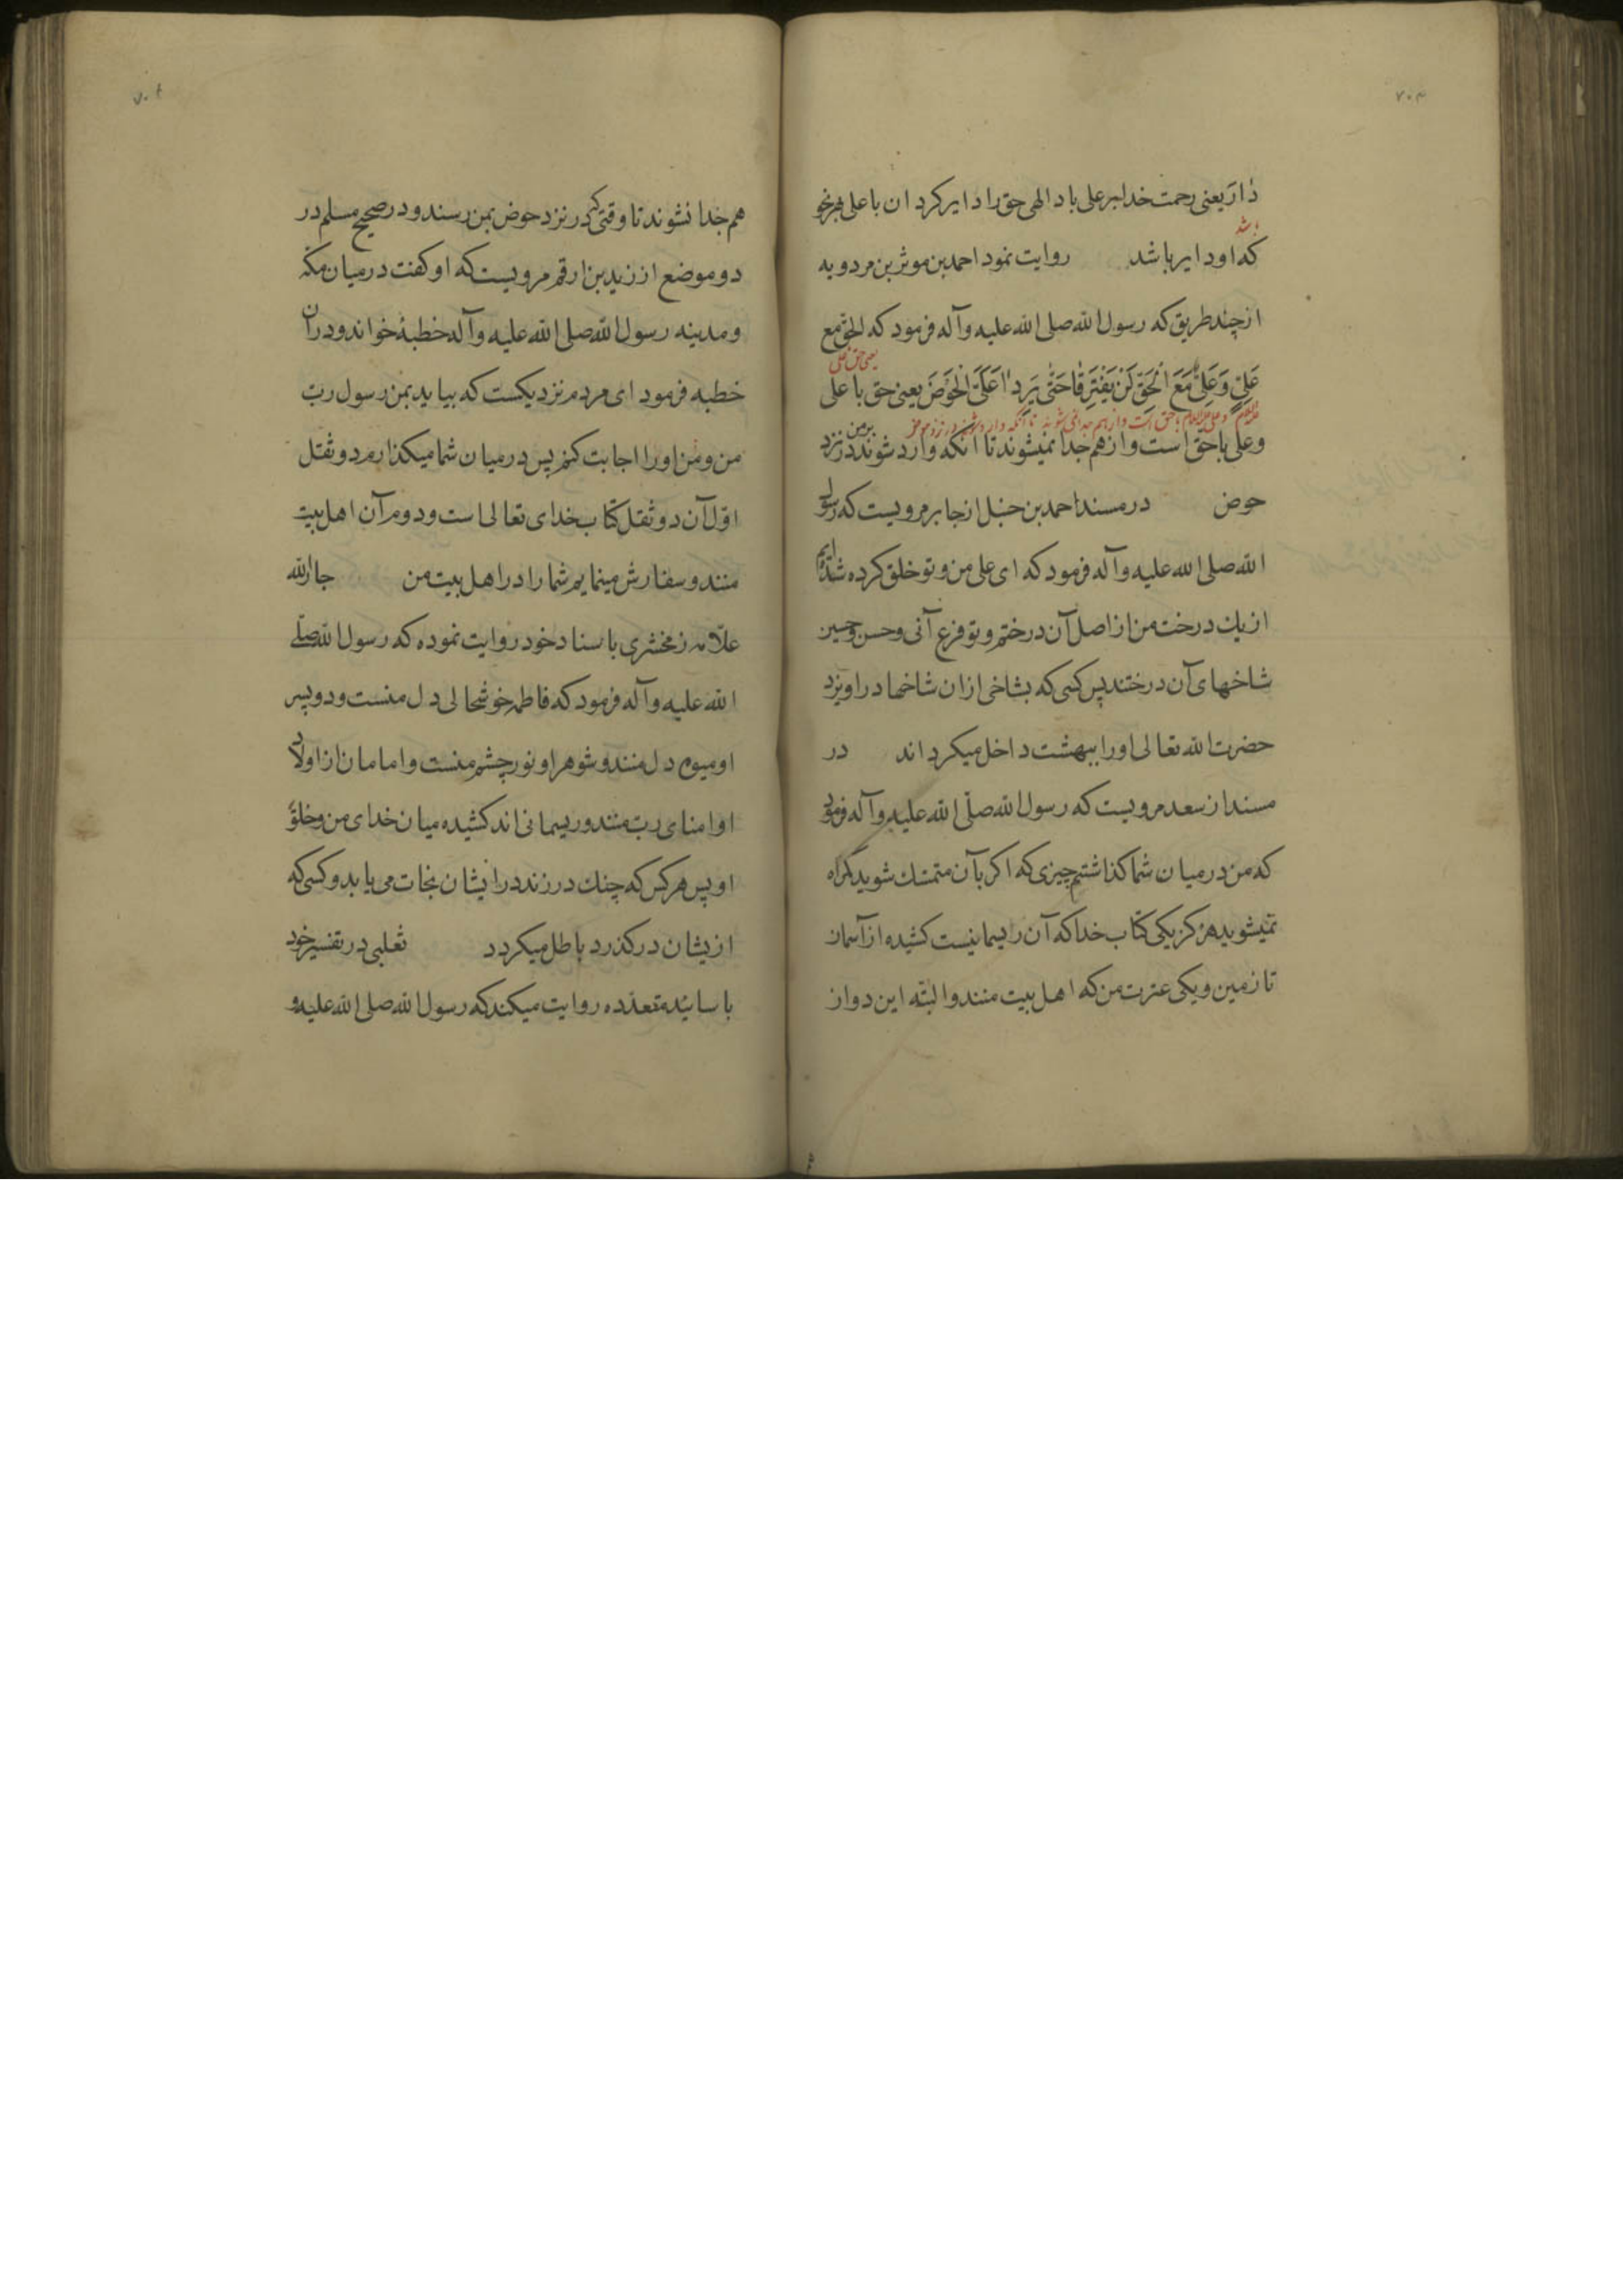 ۷۰۳
دٰارَ یعنی رحمت خدا بر علی باد الهی حق را دایر کردان با علی هر نحو
باشد
که او دایر باشد روایت نمود احمد بن موثر بن مردویه
از چند طریق که رسول الله صلی الله علیه وآله فرمود که الحق مع
یعنی حق با علی
عَلِیٍّ وَ عَلِیٌّ مَعَ الْحَقِّ لَنْ یَفْتَرِقٰا حَتّٰی یَرِدٰا عَلَیَّ الْحَوْضَ یعنی حق با علی
علیه السلام و علی علیه السلام با حق است و از هم جدا نمی شوند تا آنکه وارد شوند در نزد حوض
وعلی با حق است واز هم جدا نمیشوند تا آنکه وارد شوند بر من در نزد
حوض در مسند احمد بن حنبل از جابر مرویست که رسول
الله صلی الله علیه وآله فرمود که ای علی من و تو خلق کرده شده‌ایم
از یک درخت من از اصل آن درختم و تو فرع آنی و حسن و حسین
شاخهای آن درختند پس کسی که بشاخی ازان شاخها دراویزد
حضرت الله تعالی او را ببهشت داخل میکرداند در
مسند از سعد مرویست که رسول الله صلّی الله علیه وآله فرمود
که من در میان شما کذاشتم چیزی که اکر بآن متمسک شوید کمراه
نمیشوید هرکز یکی کتاب خدا که آن ریسمانیست کشیده از آسمان
تا زمین و یکی عترت من که اهل بیت منند والبتّه این دو از
۷۰۴
هم جدا نشوند تا وقتی که در نزد حوض بمن رسند و در صحیح مسلم در
دو موضع از زید بن ارقم مرویست که او کفت در میان مکّه
و مدینه رسول الله صلی الله علیه وآله خطبهٔ خواند و دران
خطبه فرمود ای مردم نزدیکست که بیاید بمن رسول ربّ
من و من او را اجابت کنم پس در میان شما میکذارم دو ثقل
اوّل آن دو ثقل کتاب خدای تعالی است و دوم آن اهل بیت
منند و سفارش مینمایم شما را در اهل بیت من جار الله
علّامه زمخشری باسناد خود روایت نموده که رسول الله صلّی
الله علیه وآله فرمود که فاطمه خوشحالی دل منست و دو پسر
او میوه دل منند و شوهر او نور چشم منست و امامان از اولاد
او امنای ربّ منند و ریسمانی اند کشیده میان خدای من و خلق
او پس هر کس که چنک در زند در ایشان نجات می یابد و کسی که
ازیشان در کذرد باطل میکردد ثعلبی در تفسیر خود
باسانید متعدّده روایت میکند که رسول الله صلی الله علیه و